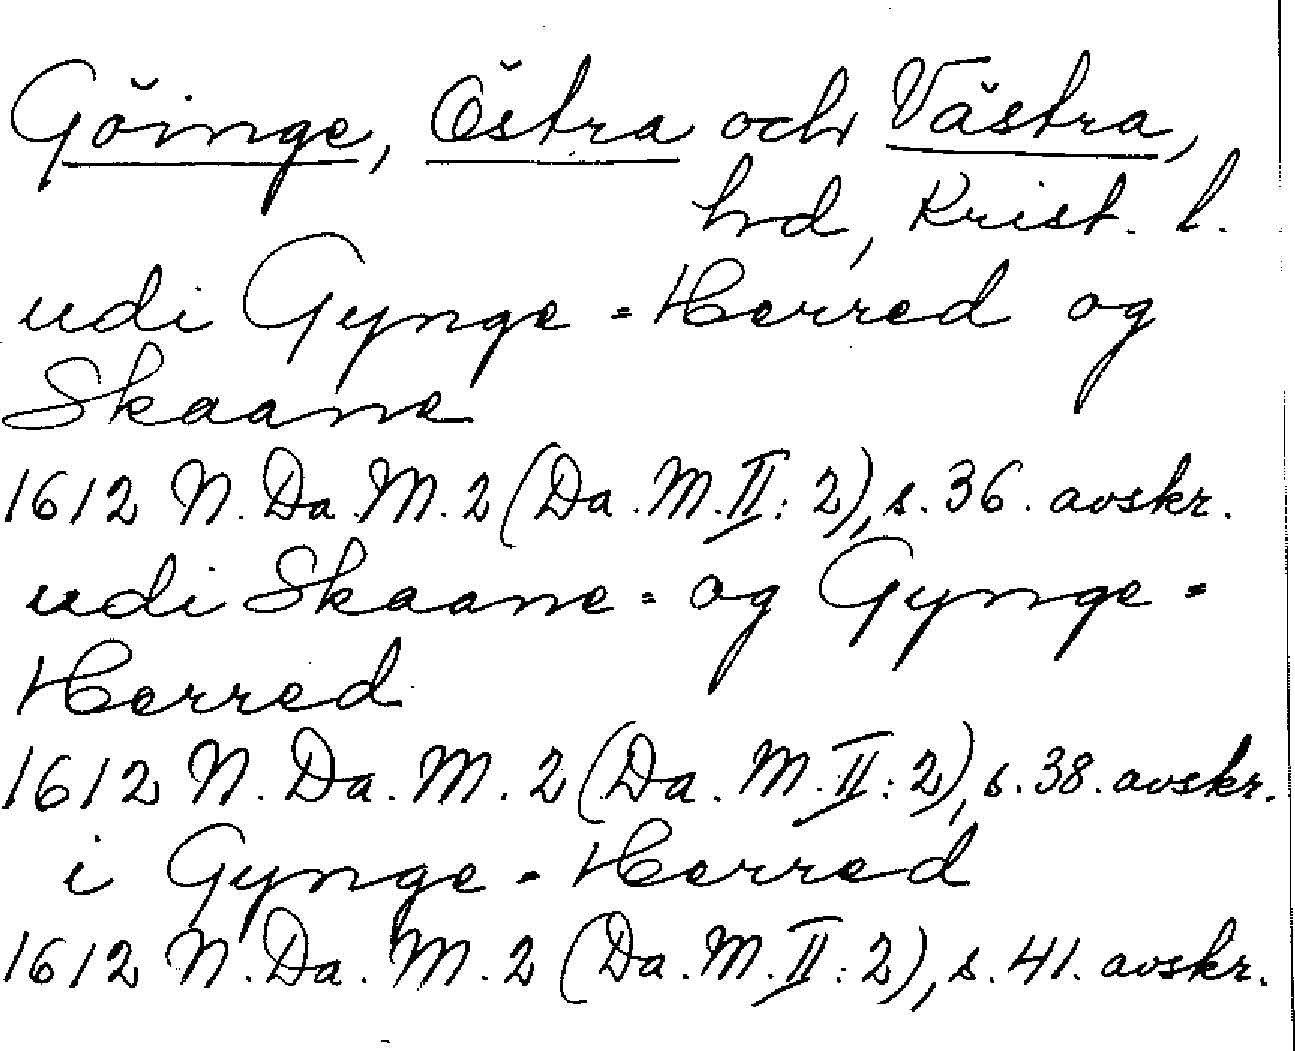 Göinge, Östra och Västra,
hd, Krist. l.
udi Gynge=Herred og
Skaane
1612 N. Da. M. 2 (Da. M. II: 2), s. 36. avskr.
udi Skaane= og Gynge=
Herred
1612 N. Da. M. 2 (Da. M. II: 2), s. 38. avskr.
i Gynge-Herred
1612 N. Da. M. 2 (Da. M. II: 2), s. 41. avskr.